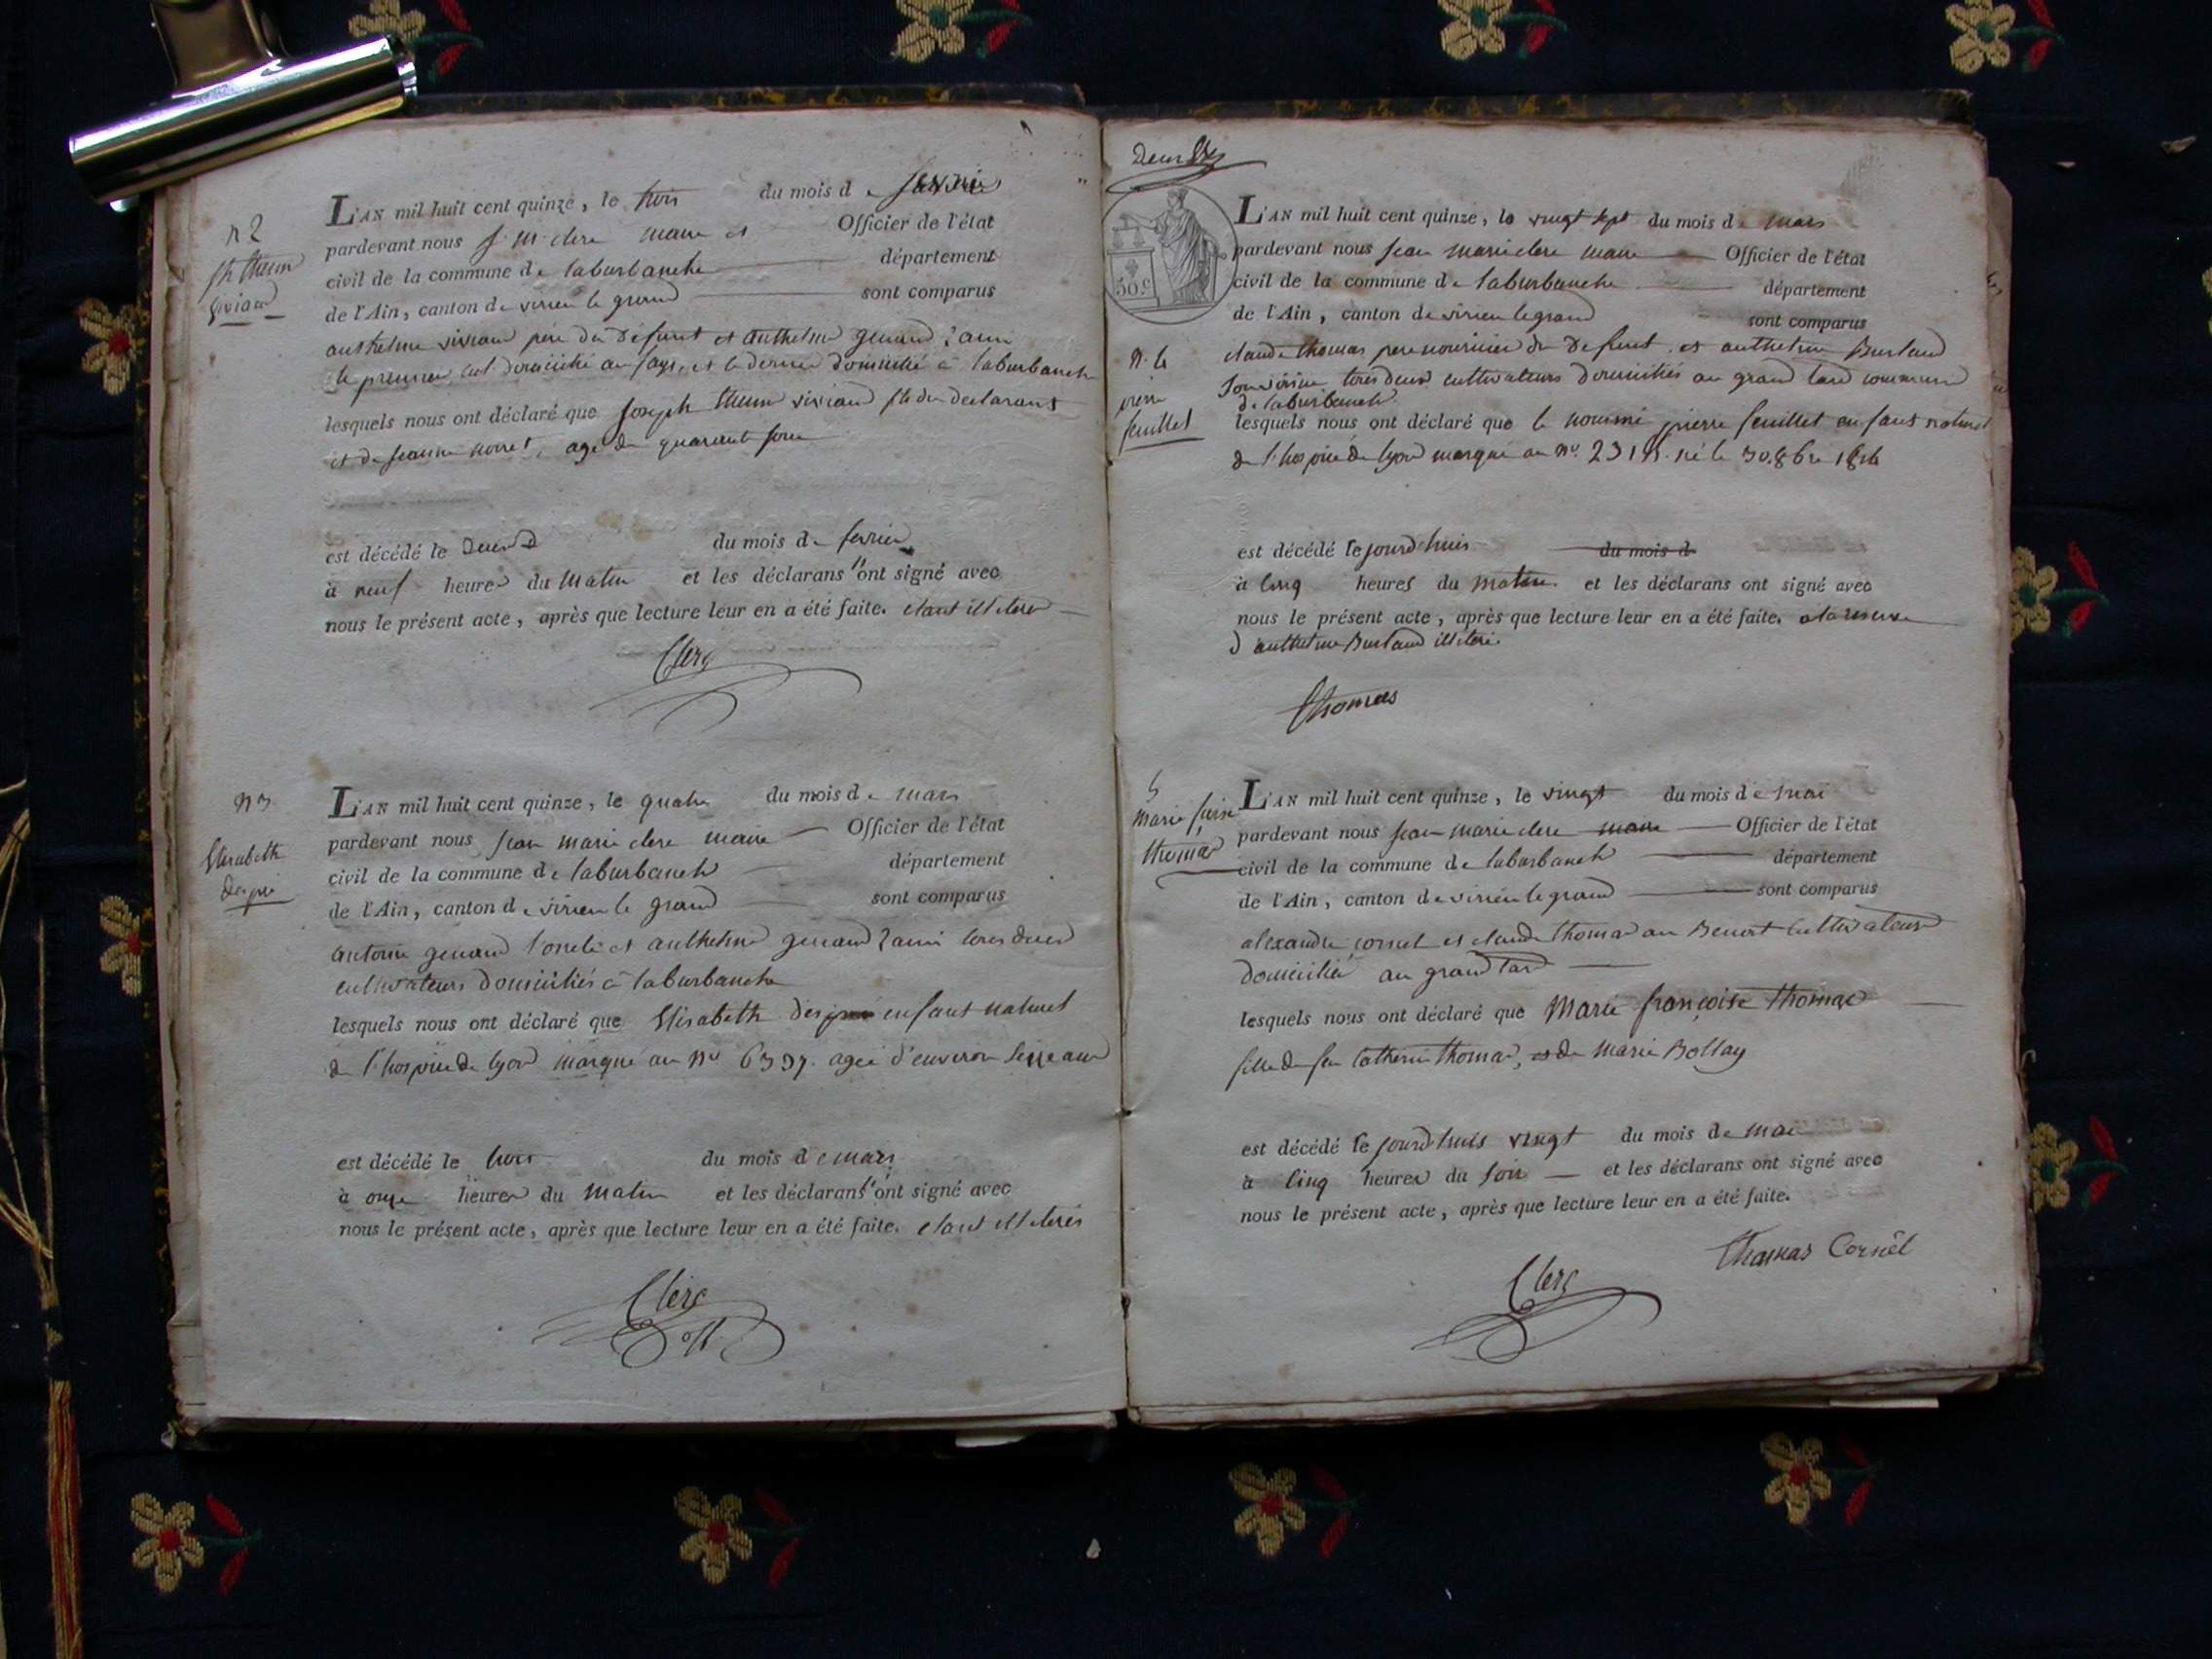 n 2
Viviand
L'AN mil huit cent quinze, le trois du mois de février
pardevant nous J. M. clerc maire et Officier de l'état
civil de la commune de laburbanche département
de l'Ain, canton de virieu le grand sont comparus
anthelme viviand père du défunt et anthelme genand l'ami
le premier domicilié au et le dernier domicilié à laburbanche
lesquels nous ont déclaré que joseph viviand fils du declarant
et de jeanne agé de quarante
est décédé le deux du mois de fevrier
à neuf heures du matin et les déclarans n'ont signé avec
nous le présent acte, après que lecture leur en a été faite. etant illiteré
Clerc
n 3.
Elisabeth
L'AN mil huit cent quinze, le quatre du mois de mars
pardevant nous jean marie clerc maire Officier de l'état
civil de la commune de laburbanche département
de l'Ain, canton de virieu le grand sont comparus
antoine genand l'oncle et anthelme genand l'ami tous deux
cultivateurs domiciliés à laburbanche
lesquels nous ont déclaré que Elisabeth enfant naturel
de l'hospice de lyon marqué au n° agée d'environ seize ans
est décédé le trois du mois de mars
à onze heures du matin et les déclarans n'ont signé avec
nous le présent acte, après que lecture leur en a été faite. etant illiterés
Clerc
Deux
50.c
L'AN mil huit cent quinze, le vingt sept du mois de mars
pardevant nous jean marie clerc maire Officier de l'état
civil de la commune de laburbanche département
de l'Ain, canton de virieu le grand sont comparus
n. 4
pierre
feuillet
claude thomas pere nouricier du defunt, et anthelme Burland
son voisin tous deux cultivateurs domiciliés au grand tard commune
de laburbanche
lesquels nous ont déclaré que le nommé pierre feuillet enfant naturel
de l'hospice de lyon marqué au n° né le 30. 8bre 1814
est décédé le jourd'huis du mois d
à cinq heures du matin et les déclarans ont signé avec
nous le présent acte, après que lecture leur en a été faite. a la reserve
d'anthelme Burland illiteré
thomas
5
marie
thomas
L'AN mil huit cent quinze, le vingt du mois de mai
pardevant nous jean marie clerc maire Officier de l'état
civil de la commune de laburbanche département
de l'Ain, canton de virieu le grand sont comparus
alexandre cornet et claude thomas au Benoit cultivateurs
domicilié au grand tard
lesquels nous ont déclaré que Marie françoise thomas
fille de feu thomas, et de marie Bollay
est décédé le jourd'huis vingt du mois de mai
à cinq heures du soir et les déclarans ont signé avec
nous le présent acte, après que lecture leur en a été faite.
thomas Cornêt
Clerc